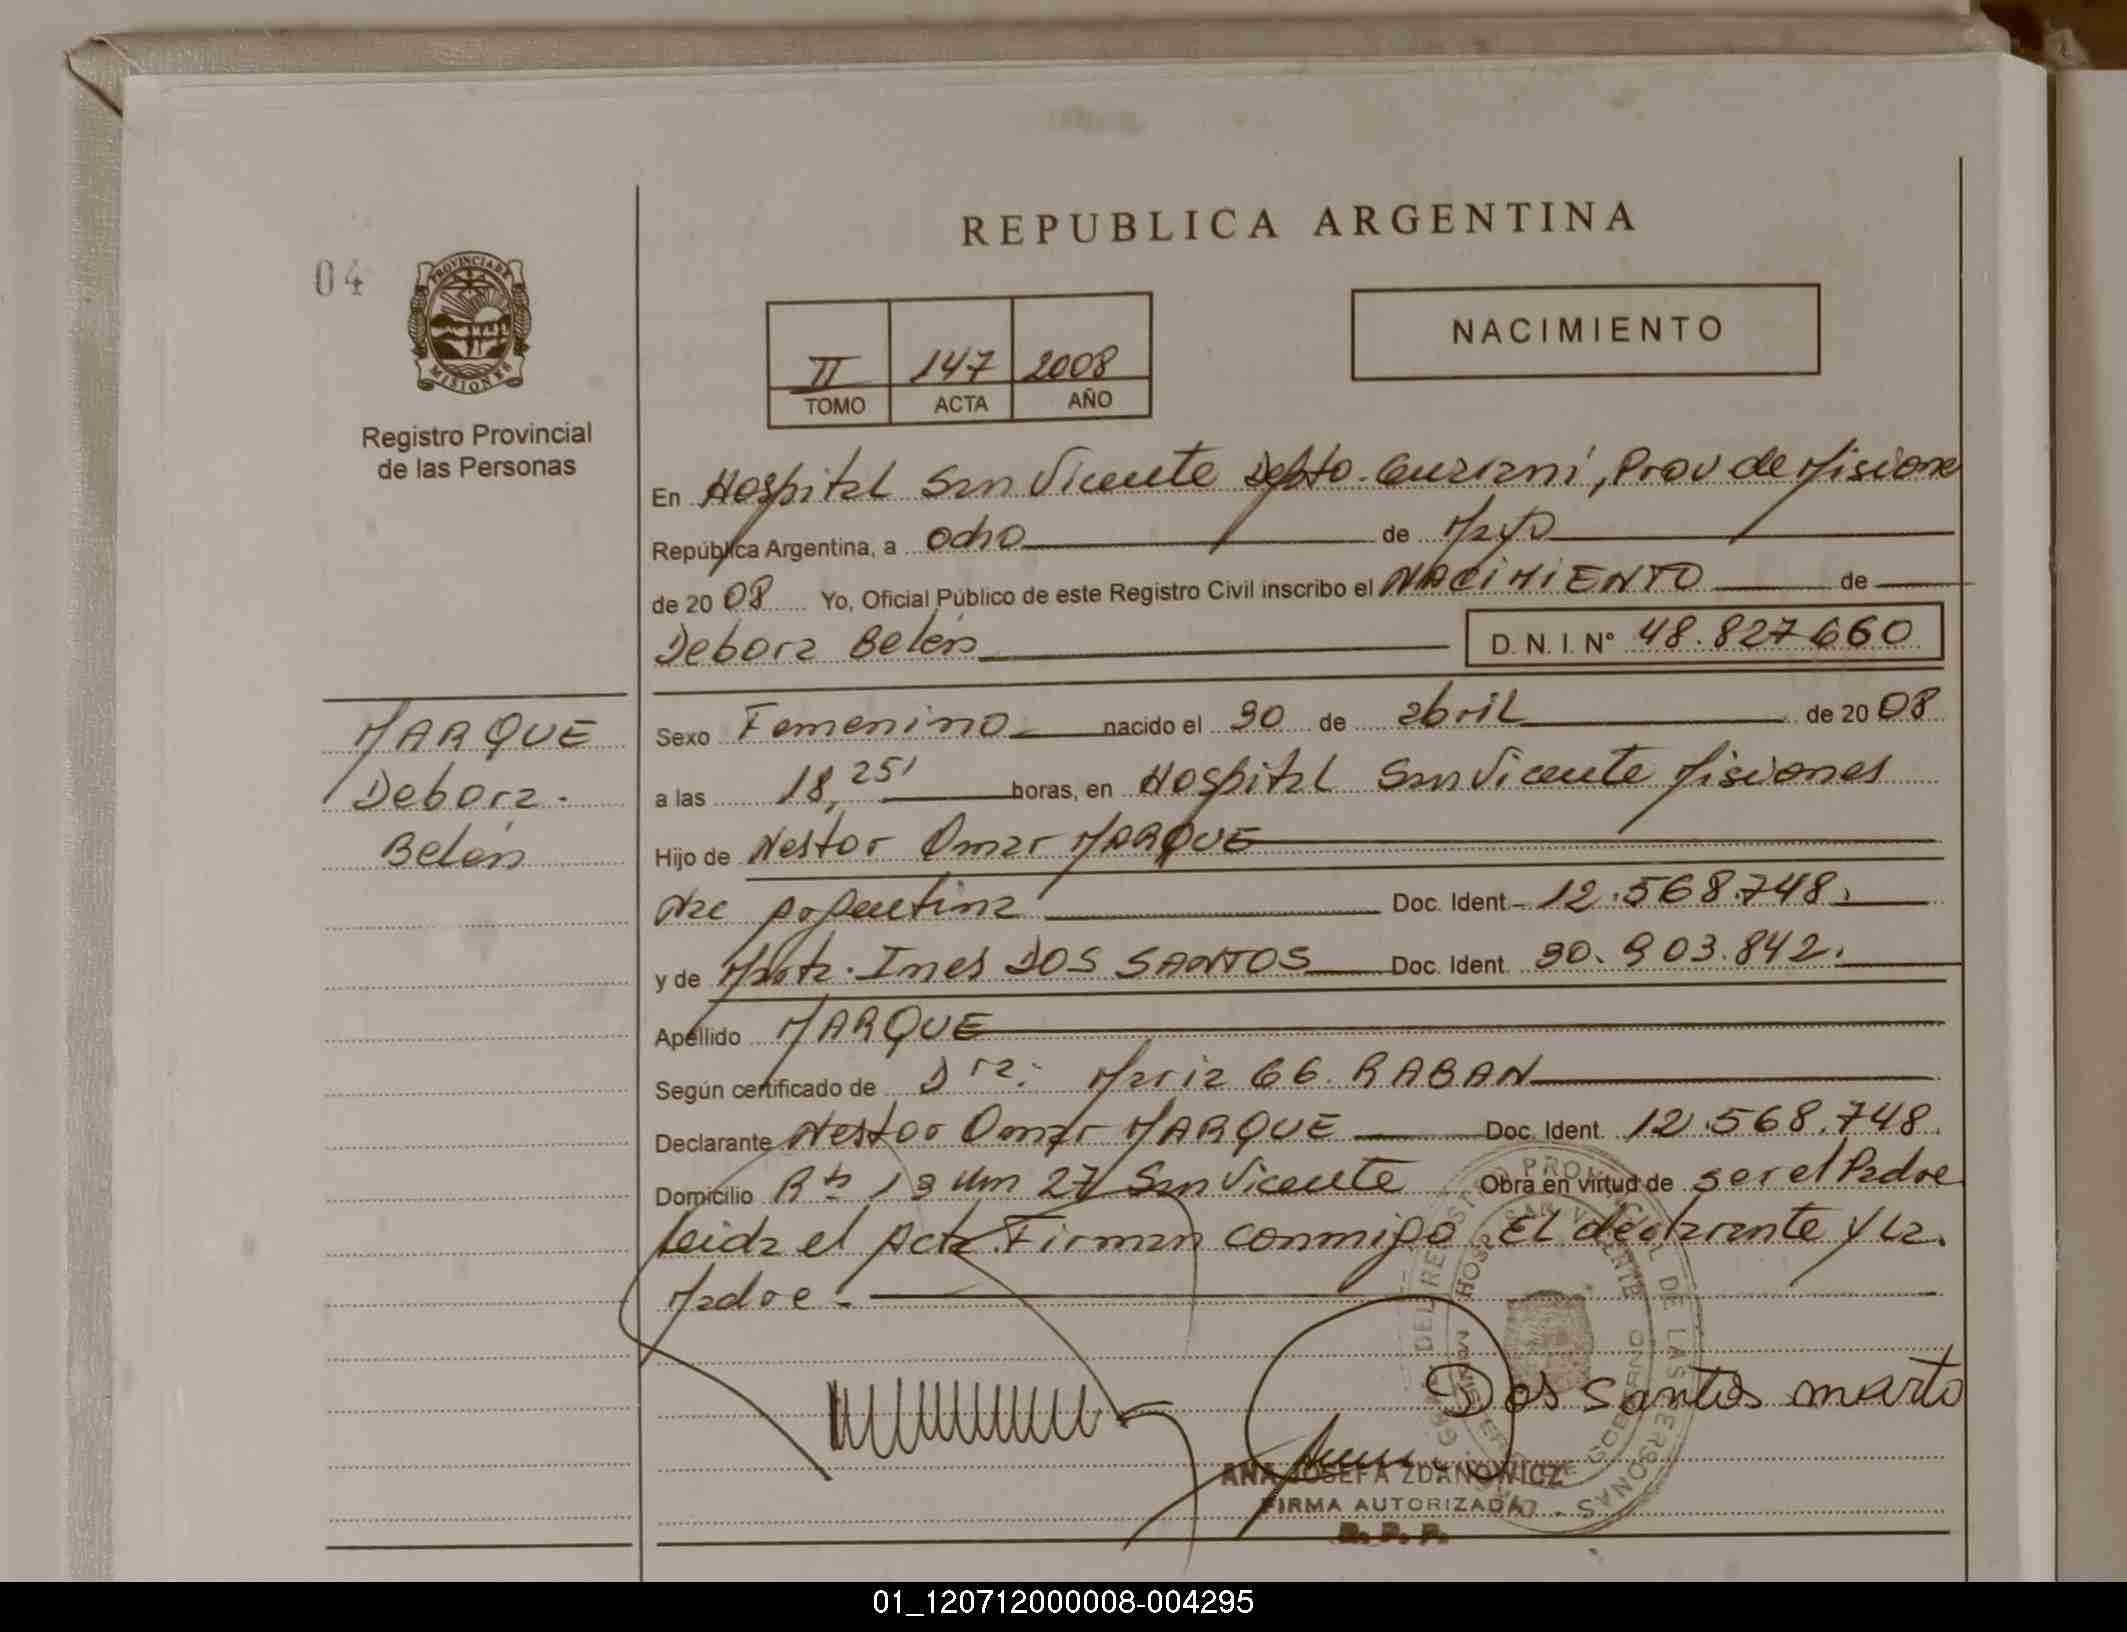 REPUBLICA ARGENTINA
04
PROVINCIA DE
MISIONES
Registro Provincial
de las Personas
II 147 2008
TOMO ACTA AÑO
NACIMIENTO
En Hospital San Vicente Depto. Guarani, Prov de Misiones
República Argentina, a ocho de Mayo
de 20 08 Yo, Oficial Público de este Registro Civil inscribo el NACIMIENTO de
Debora Belén D. N. I. N° 48.827660
MARQUE
Debora.
Belén
Sexo Femenino nacido el 30 de abril de 20 08
a las 18,25' horas, en Hospital San Vicente Misiones
Hijo de Nestor Omar MARQUE
Nac Argentina Doc. Ident 12.568.748.
y de Marta. Ines DOS SANTOS Doc. Ident. 30.903.842.
Apellido MARQUE
Según certificado de Dra: Maria GG. RABAN
Declarante Nestor Omar MARQUE Doc. Ident. 12.568.748.
Domicilio Rta 13 Km 27 San Vicente Obra en virtud de ser el Padre
Leida el Acta Firman conmigo El declarante y La.
Madre.
Dos santos marta
ANA JOSEFA ZDANOWICZ
FIRMA AUTORIZADA
R. P. P.
01_120712000008-004295